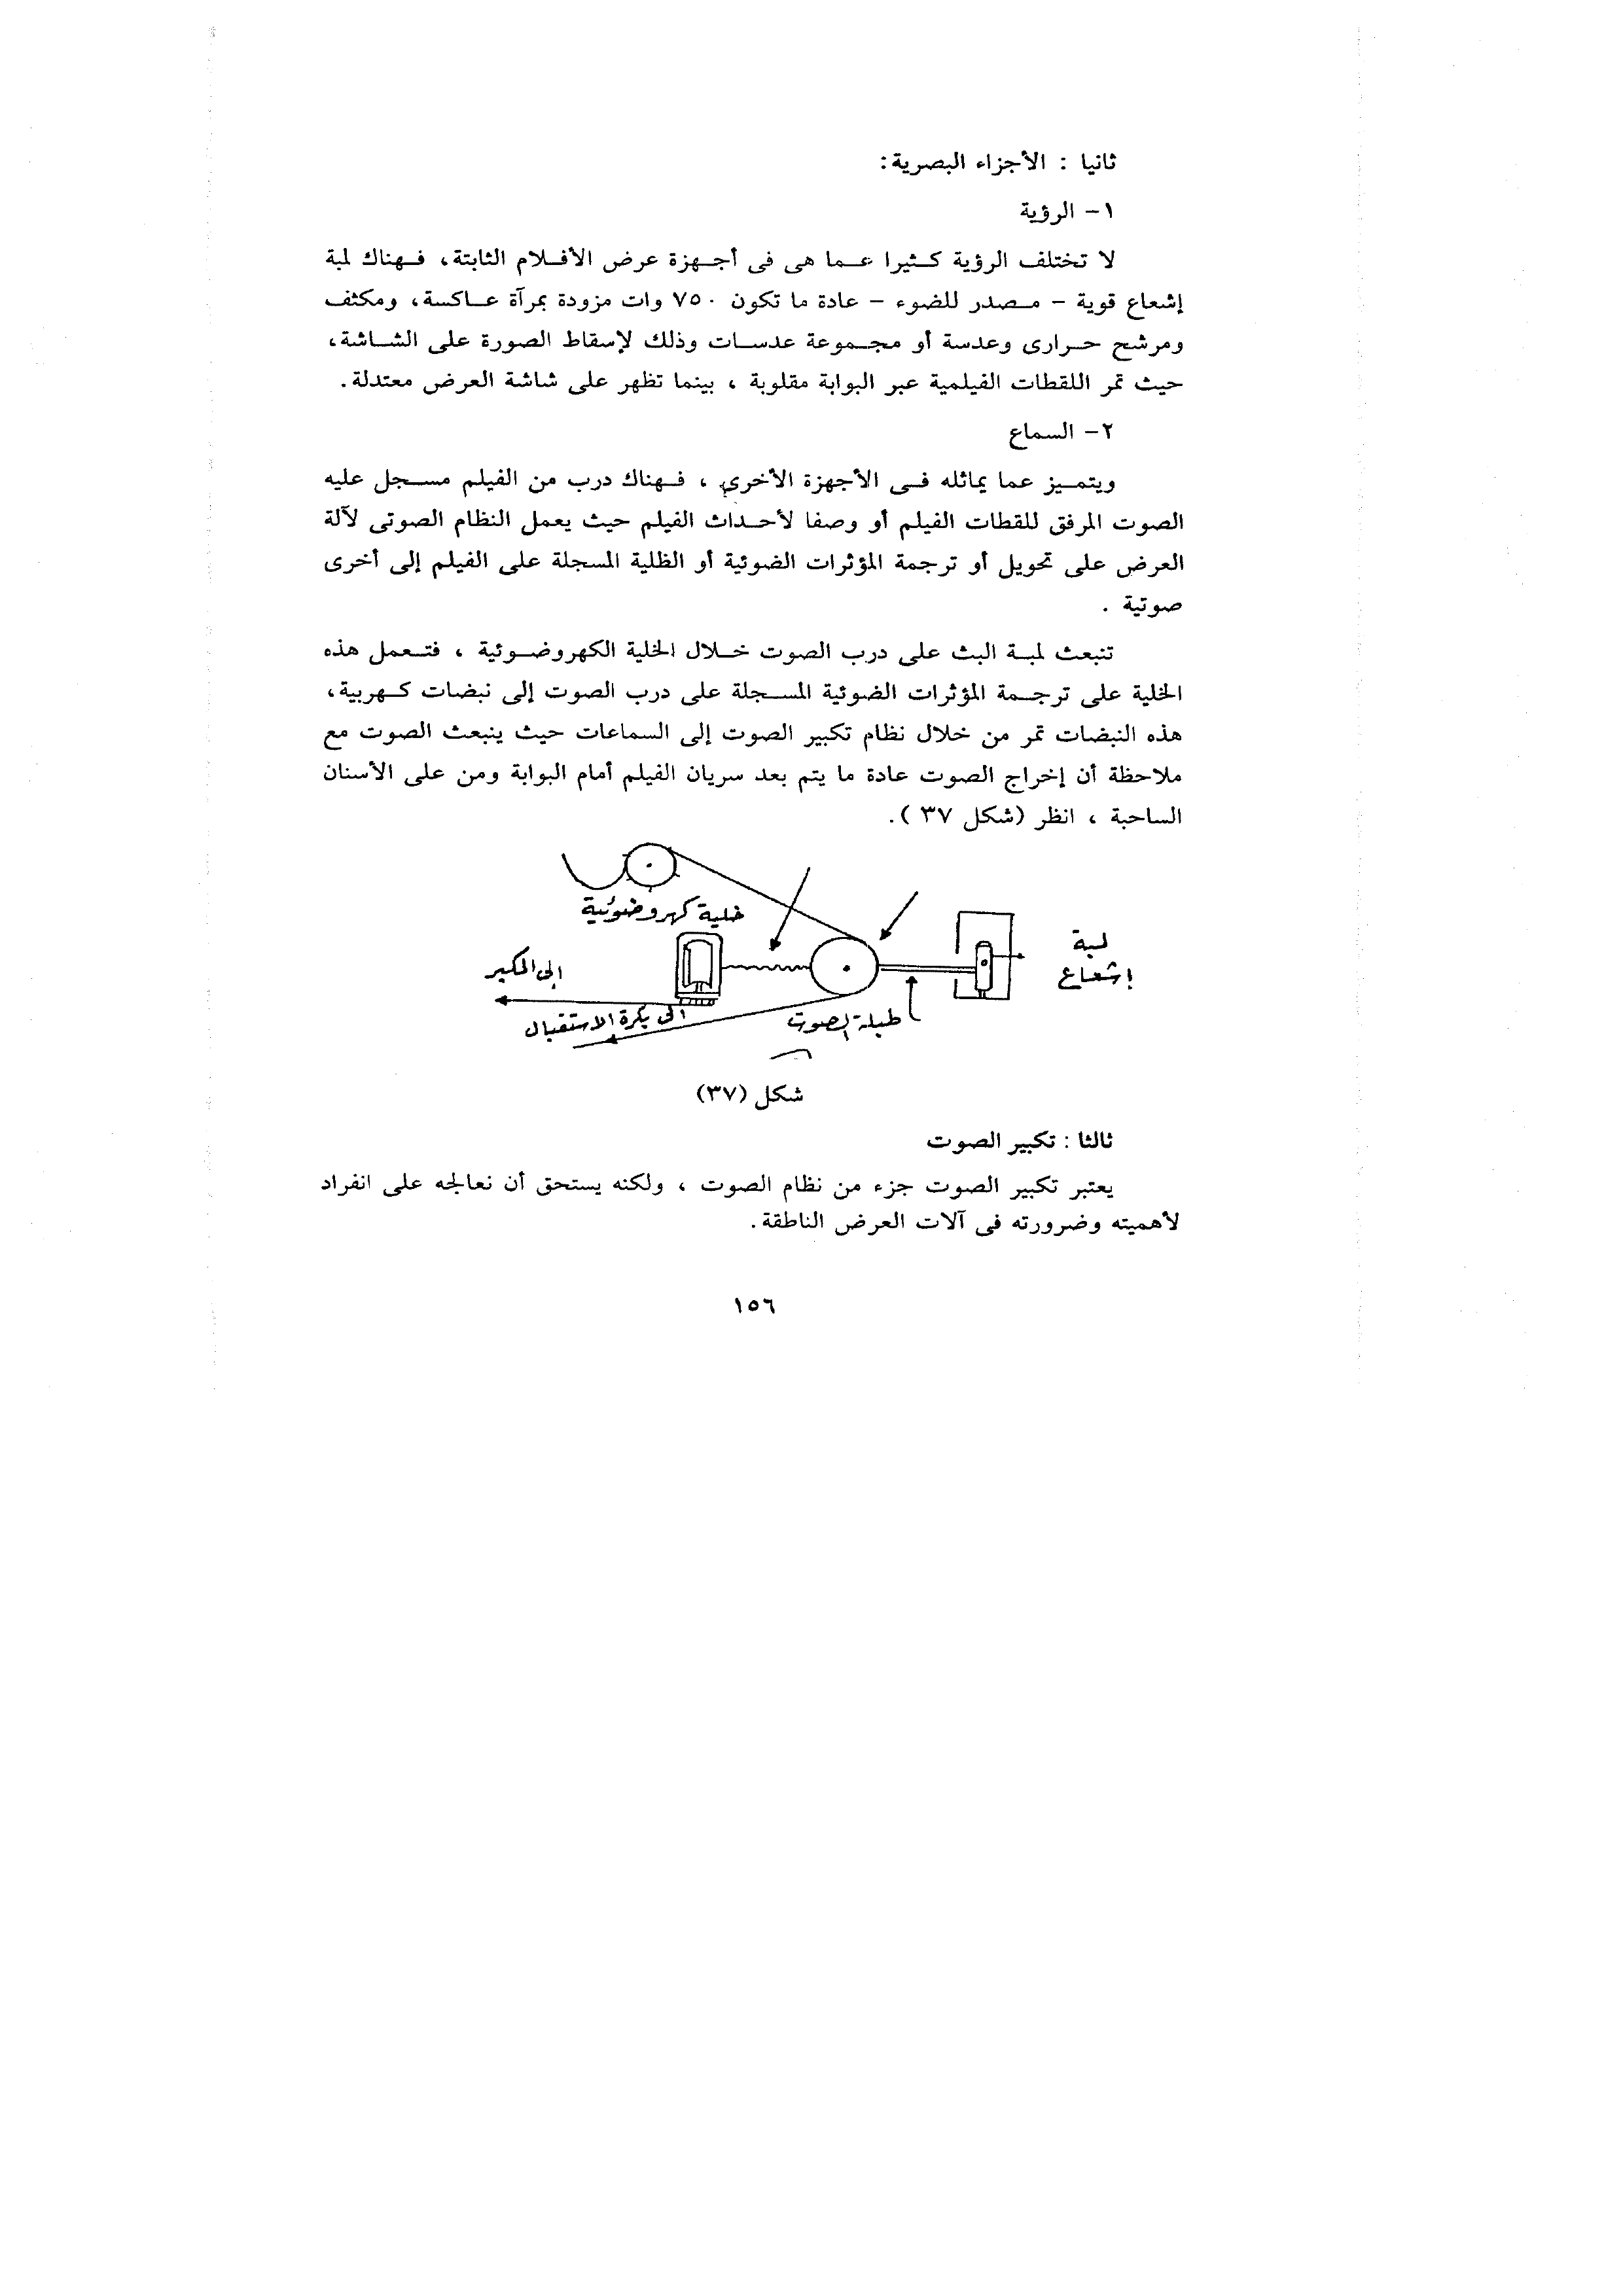 ثانيا : الأجزاء البصرية:
١- الرؤية
لا تختلف الرؤية كثيرا عما هى فى أجهزة عرض الأفلام الثابتة، فهناك لمبة
إشعاع قوية - مصدر للضوء - عادة ما تكون ٧٥٠ وات مزودة بمرآة عاكسة، ومكثف
ومرشح حرارى وعدسة أو مجموعة عدسات وذلك لإسقاط الصورة على الشاشة،
حيث تمر اللقطات الفيلمية عبر البوابة مقلوبة ، بينما تظهر على شاشة العرض معتدلة.
٢- السماع
ويتميز عما يماثله فى الأجهزة الأخرى ، فهناك درب من الفيلم مسجل عليه
الصوت المرفق للقطات الفيلم أو وصفا لأحداث الفيلم حيث يعمل النظام الصوتى لآلة
العرض على تحويل أو ترجمة المؤثرات الضوئية أو الظلية المسجلة على الفيلم إلى أخرى
صوتية .
تنبعث لمبة البث على درب الصوت خلال الخلية الكهروضوئية ، فتعمل هذه
الخلية على ترجمة المؤثرات الضوئية المسجلة على درب الصوت إلى نبضات كهربية،
هذه النبضات تمر من خلال نظام تكبير الصوت إلى السماعات حيث ينبعث الصوت مع
ملاحظة أن إخراج الصوت عادة ما يتم بعد سريان الفيلم أمام البوابة ومن على الأسنان
الساحبة ، انظر (شكل ٣٧ ).
خلية كهروضوئية
لمبة
إشعاع
إلى المكبر
طبلة الصوت
الى بكرة الاستقبال
شكل (٣٧)
ثالثا : تكبير الصوت
يعتبر تكبير الصوت جزء من نظام الصوت ، ولكنه يستحق أن نعالجه على انفراد
لأهميته وضرورته فى آلات العرض الناطقة.
١٥٦